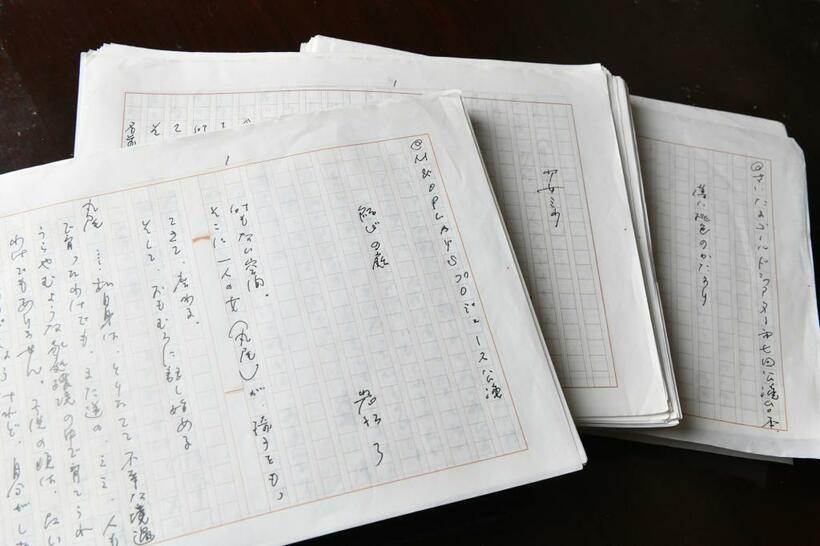 1
◎M&OPLAYSプロデュース公演
結びの庭
岩松了
何もない空間。
そこに一人の女(丸尾)が椅子をもっ
てきて、座わる。
そして、おもむろに話し始める
丸尾 …私自身は、とりたてて不幸な境遇
で育ったわけでも、また逆の、……人も
うらやむような家庭環境の中で育てられ
わけでもありません。子供の頃は、
1
少女ミウ
◎さいたまゴールド・シアター第七回公演台本
薄い桃色のかたまり